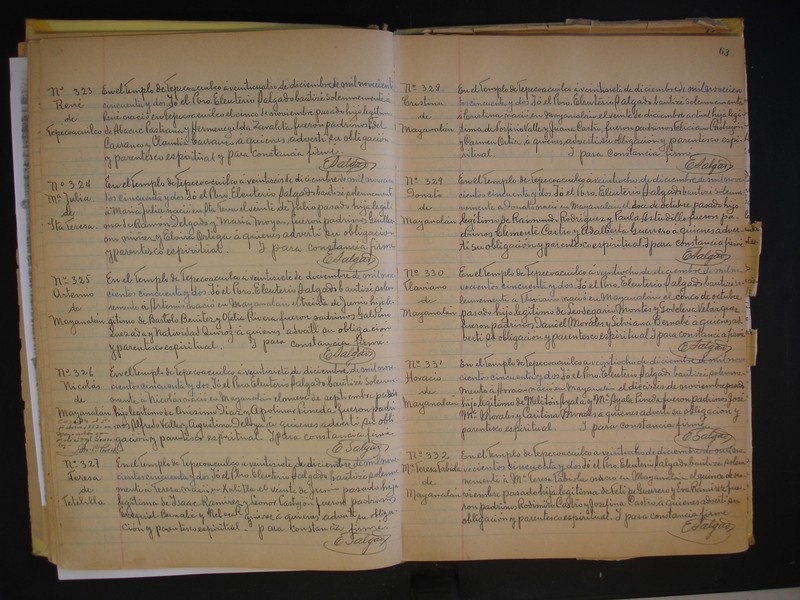 Nº 323 En el Templo de Tepecoacuilco á veinticuatro de diciembre de mil novecient
René cincuenta y dos Yó el Pbro. Eleuterio Salgado bauticé solemnemente á
de René nació en Tepecoacuilco el once de noviembre pasado hijo legitimo
Tepecoacuilco de fueron padrinos
Claudia á quienes advertí su obligación
y parentesco espiritual y para constancia firmo
E Salgado
Nº 324 En el Templo de Tepecoacuilco á veintiseis de diciembre de mil novecien
Mª Julia tos cincuenta y dos Yó el Pbro. Eleuterio Salgado bauticé solemnemente
de á Maria Julia nació en Sta Teresa el veinte de Julio pasado hija legiti
Sta Teresa. ma de Ramón Delgado y Maria fueron padrinos
y Elvira Ortega á quienes advertí su obligación
y parentesco espiritual. Y para constancia firmo
E Salgado
Nº 325 En el Templo de Tepecoacuilco á veintisiete de diciembre de mil nove
Artemio cientos cincuenta y dos Yó el Pbro. Eleuterio Salgado bauticé solem
de nemente á Artemio nació en Mayanalán el treinta de Junio hijo le
Mayanalán gitimo de Bartolo Benitez y Ofelia Rivera fueron padrinos
Quezada y Natividad Quiroz á quienes advertí su obligación
y parentesco espiritual. Y para constancia firmo.
E Salgado
Nº 326 En el Templo de Tepecoacuilco á veintisiete de diciembre de mil nove
Nicolás cientos cincuenta y dos Yó el Pbro. Eleuterio Salgado bauticé solemne
de mente á Nicolás nació en Mayanalán el nueve de septiembre pasado
Mayanalán hijo legitimo de Onésimo Diaz y Apolinar Pineda fueron padri
nos Alfredo Valle y Agustina á quienes advertí su obli
gación y parentesco espiritual. Y para constancia firmo
E Salgado
Nº 327 En el Templo de Tepecoacuilco á veintisiete de diciembre de mil nove
Teresa cientos cincuenta y dos Yó el Pbro. Eleuterio Salgado bauticé solem
de nemente á Teresa nació en el veinte de Junio pasado hija
legitima de Isaac Ramirez y Leonor fueron padrinos
Ezequiel á quienes advertí su obliga
ción y parentesco espiritual. Y para constancia firmo
E Salgado
63
Nº 328 En el Templo de Tepecoacuilco á veintisiete de diciembre de mil novecien
Cristina tos cincuenta y dos Yó el Pbro. Eleuterio Salgado bauticé solemnemente
de á Cristina nació en Mayanalán el veinte de diciembre actual hija legi
Mayanalán tima de Porfirio Valle y Juana Castro fueron padrinos
y Carmen Ortiz á quienes advertí su obligación y parentesco espi
ritual. Y para constancia firmo
E Salgado
Nº 329 En el Templo de Tepecoacuilco á veintiocho de diciembre de mil nove
Donato cientos cincuenta y dos Yó el Pbro. Eleuterio Salgado bauticé solem
de nemente á Donato nació en Mayanalán el doce de octubre pasado hijo
Mayanalán legitimo de Raimundo Rodriguez y Paula Astudillo fueron pa
drinos Clemente Castro y Adalberta Guerrero á quienes adver
tí su obligación y parentesco espiritual Y para constancia firmo
E Salgado
Nº 330 En el Templo de Tepecoacuilco á veintiocho de diciembre de mil no
Flaviano vecientos cincuenta y dos Yó el Pbro. Eleuterio Salgado bauticé so
de lemnemente á Flaviano nació en Mayanalán el once de octubre
Mayanalán pasado hijo legitimo de Leodegario Montes y Godeleva Velazquez
fueron padrinos Daniel Morales y Silviana á quienes ad
vertí su obligación y parentesco espiritual Y para constancia firmo
E Salgado
Nº 331 En el Templo de Tepecoacuilco á veintiocho de diciembre de mil nove
Horacio cientos cincuenta y dos Yó el Pbro. Eleuterio Salgado bauticé solemne
de mente á Horacio nació en Mayanalán el dieciseis de noviembre pasado
Mayanalán hijo legitimo de Melitón Ayala y Mª fueron padrinos José
Mª Morales y á quienes advertí su obligación y
parentesco espiritual. Y para constancia firmo
E Salgado
Nº 332 En el Templo de Tepecoacuilco á veintiocho de diciembre de mil no
Mª Teresa Fabiola vecientos cincuenta y dos Yó el Pbro. Eleuterio Salgado bauticé solem
de nemente á Mª Teresa Fabiola nació en Mayanalán el quince de no
Mayanalán viembre pasado hija legitima de Guerrero y fue
ron padrinos Castro y Josefina á quienes advertí su
obligación y parentesco espiritual. Y para constancia firmo
E Salgado